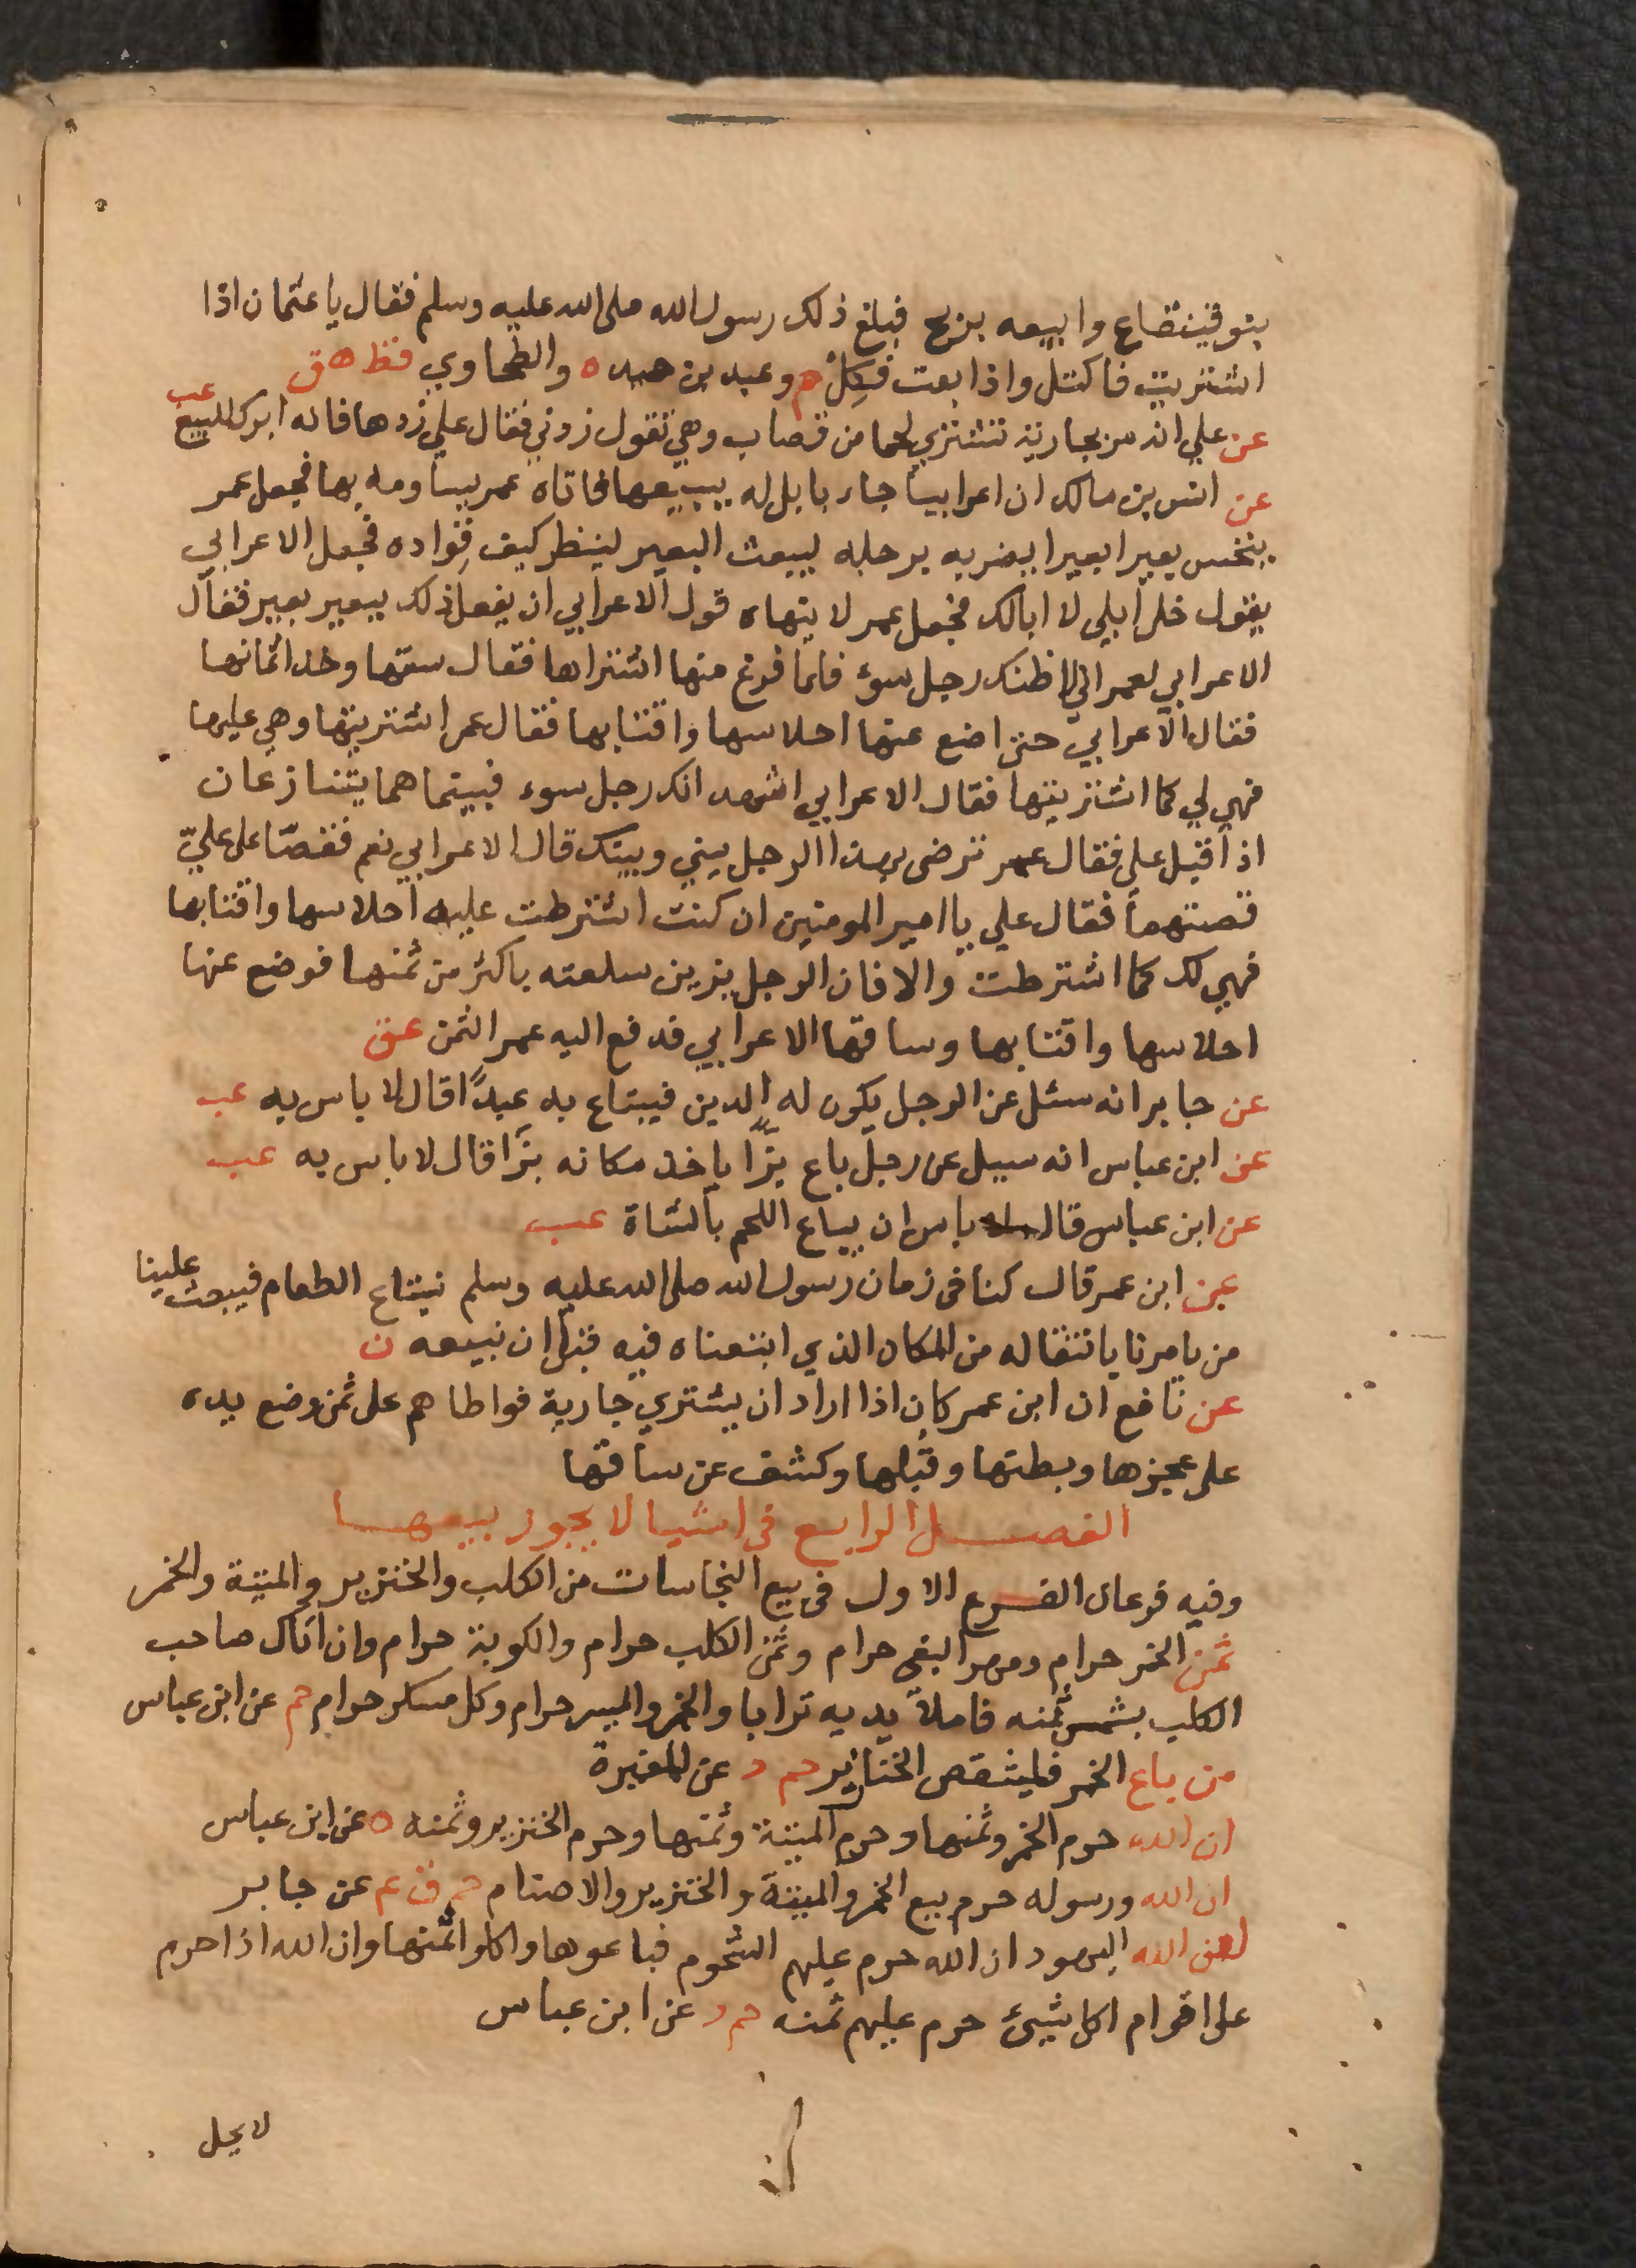 بنو قينقاع وابيعه بربح فبلغ ذلك رسول الله صلى الله عليه وسلم فقال يا عثمان اذا
اشتريت فاكتل واذا بعت فكِلْ حم وعبد بن حميد ه والطحاوي قط ه ق
عن علي انه مر بجارية تشتري لحما من قصاب وهي تقول زدني فقال علي زدها فانه ابرك للبيع عب
عن انس بن مالك ان اعرابيا جاء بابل له يبيعها فاتاه عمر يساومه بها فجعل عمر
ينخس بعيرا بعيرا يضربه برجله ليبعث البعير لينظر كيف فواده فجعل الاعرابي
يقول خل ابلي لا ابالك فجعل عمر لا ينهاه قول الاعرابي ان يفعل ذلك ببعير بعير فقال
الاعرابي لعمر اني لاظنك رجل سوء فلما فرغ منها اشتراها فقال سقها وخذ اثمانها
فقال الاعرابي حتى اضع عنها احلاسها واقتابها فقال عمر اشتريتها وهي عليها
فهي لي كما اشتريتها فقال الاعرابي اشهد انك رجل سوء فبينما هما يتنازعان
اذ اقبل علي فقال عمر ترضى بهذا الرجل بيني وبينك قال الاعرابي نعم فقصّا على عليّ
قصتهما فقال علي يا امير المومنين ان كنت اشترطت عليه احلاسها واقتابها
فهي لك كما اشترطت والا فان الرجل يزين سلعته باكثر من ثمنها فوضع عنها
احلاسها واقتابها وساقها الاعرابي فدفع اليه عمر الثمن عق
عن جابر انه سئل عن الرجل يكون له الدين فيبتاع به عبدًا قال لا باس به عب
عن ابن عباس انه سيل عن رجل باع بزّا ياخذ مكانه بزّا قال لا باس به عب
عن ابن عباس قال لا باس ان يباع اللحم بالشاة عب
عن ابن عمر قال كنا في زمان رسول الله صلى الله عليه وسلم نبتاع الطعام فيبعث علينا
من يامرنا بانتقاله من المكان الذي ابتعناه فيه قبل ان نبيعه ن
عن نافع ان ابن عمر كان اذا اراد ان يشتري جارية فواطاهم على ثمن وضع يده
على عجزها وبطنها وقُبلها وكشف عن ساقها
الفصل الرابع في اشيا لا يجوز بيعها
وفيه فرعان الفرع الاول في بيع النجاسات من الكلب والخنزير والميتة والخمر
ثمن الخمر حرام ومهر البغي حرام وثمن الكلب حرام والكوبة حرام وان اتاك صاحب
الكلب يلتمس ثمنه فاملأ يديه ترابا والخمر والميسر حرام وكل مسكر حرام حم عن ابن عباس
من باع الخمر فليشقص الخنازير حم د عن المغيرة
ان الله حرم الخمر وثمنها وحرم الميتة وثمنها وحرم الخنزير وثمنه ه عن ابن عباس
ان الله ورسوله حرم بيع الخمر والميتة والخنزير والاصنام حم ق عم عن جابر
لعن الله اليهود ان الله حرم عليهم الشحوم فباعوها واكلوا اثمنها وان الله اذا حرم
على اقوام اكل شيئ حرم عليهم ثمنه حم د عن ابن عباس
لا يحل